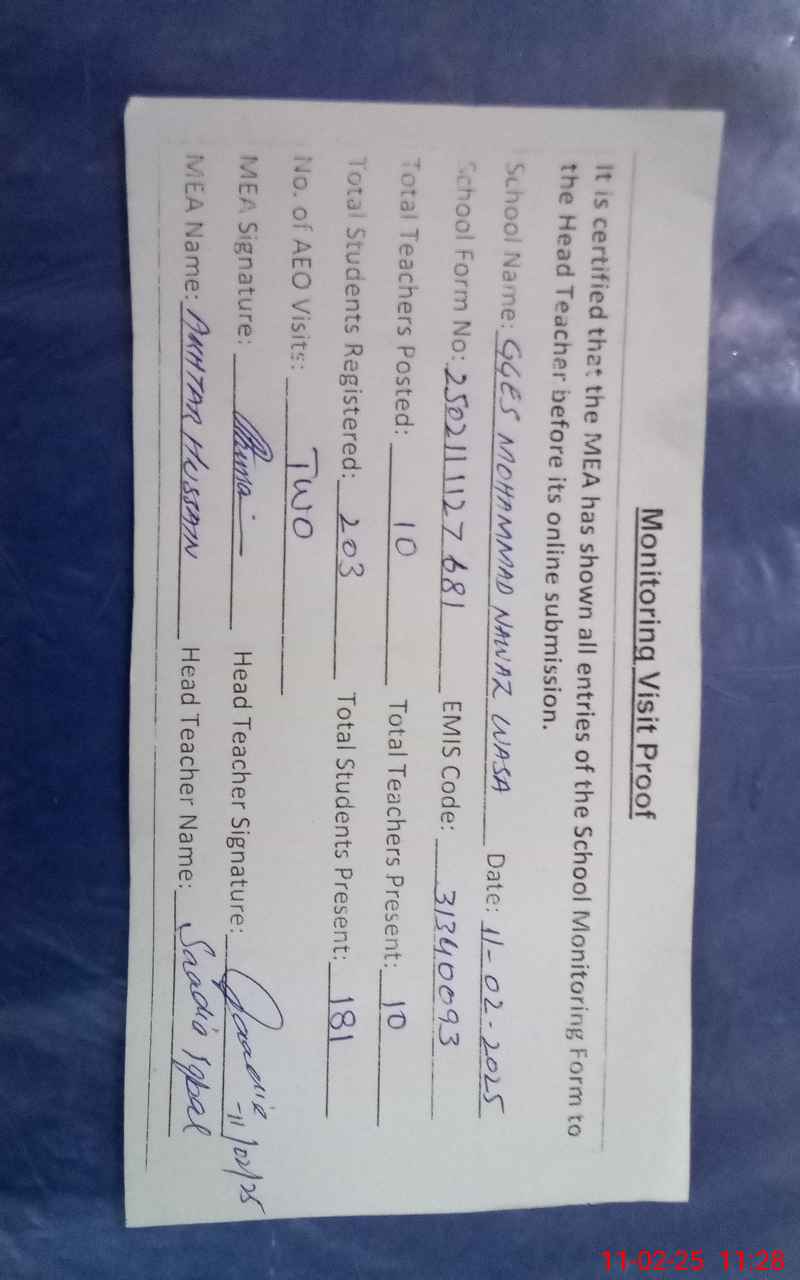 Monitoring Visit Proof
It is certified that the MEA has shown all entries of the School Monitoring Form to
the Head Teacher before its online submission.
School Name: GGES MOHAMMAD NAWAZ WASA Date: 11-02-2025
School Form No: 2502111127681 EMIS Code: 31340093
Total Teachers Posted: 10 Total Teachers Present: 10
Total Students Registered: 203 Total Students Present: 181
No. of AEO Visits: TWO
MEA Signature: Head Teacher Signature: Saadia 11/02/25
MEA Name: AKHTAR HUSSAIN Head Teacher Name: Saadia Iqbal
11-02-25 11:28